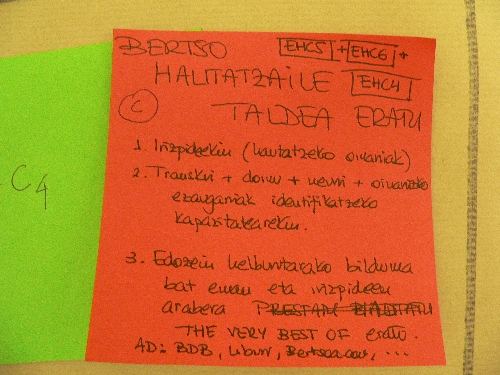 BERTSO [EHC5] + [EHC6] +
HAUTATZAILE [EHC4]
C TALDEA ERATU
1. Irizpideekin (hautatzeko oinarriak)
2. + doinu + neurri +
ezaugarriak identifikatzeko
kapazitatearekin.
3. Edozein helburutarako bilduma
bat eman eta irizpideen
arabera
THE VERY BEST OF eratu.
AD: BDB, liburu, ...
C4